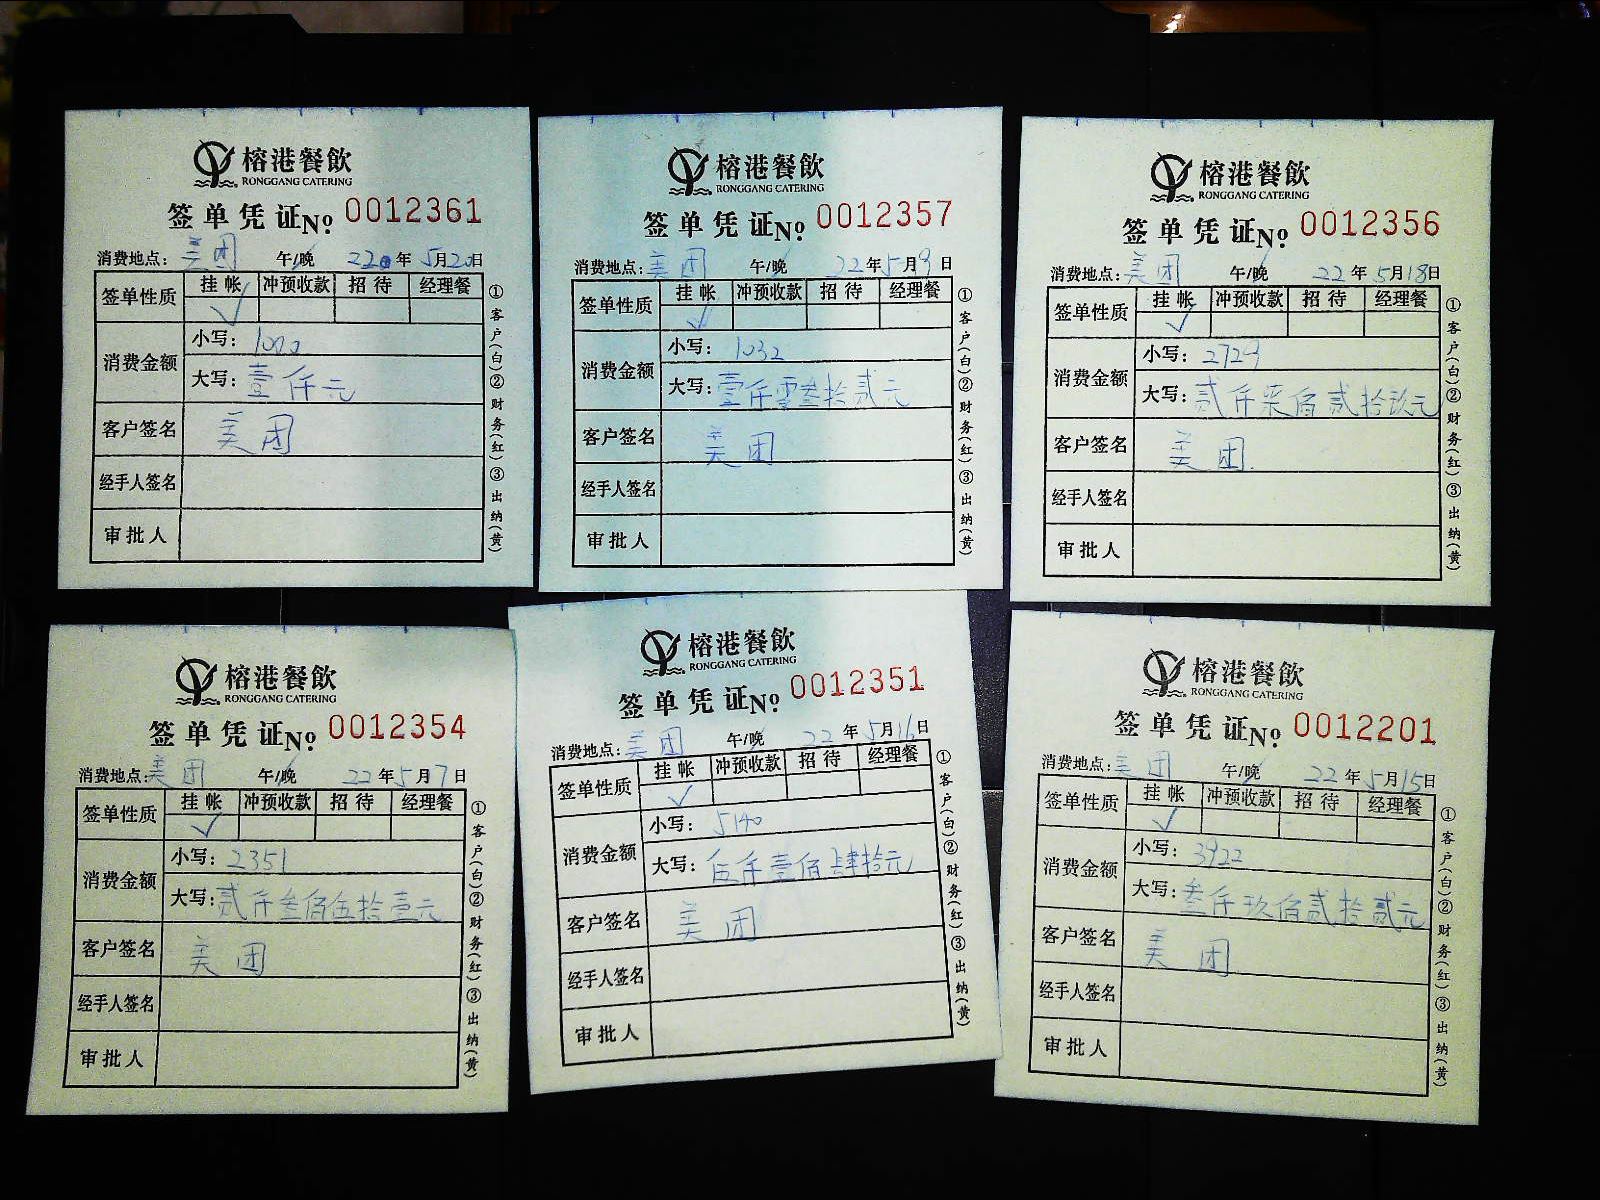 榕港餐飲
RONGGANG CATERING
签单凭证No. 0012361
消费地点: 美团 午/晚 220年5月20日
签单性质 挂帐 冲预收款 招待 经理餐
✓
消费金额
小写: 1000
大写: 壹仟元
客户签名 美团
经手人签名
审批人
①客户(白)②财务(红)③出纳(黄)
榕港餐飲
RONGGANG CATERING
签单凭证No. 0012357
消费地点: 美团 午/晚 22年5月9日
签单性质 挂帐 冲预收款 招待 经理餐
✓
消费金额
小写: 1032
大写: 壹仟零叁拾贰元
客户签名 美团
经手人签名
审批人
①客户(白)②财务(红)③出纳(黄)
榕港餐飲
RONGGANG CATERING
签单凭证No. 0012356
消费地点: 美团 午/晚 22年5月18日
签单性质 挂帐 冲预收款 招待 经理餐
✓
消费金额
小写: 2729
大写: 贰仟柒佰贰拾玖元
客户签名 美团.
经手人签名
审批人
①客户(白)②财务(红)③出纳(黄)
榕港餐飲
RONGGANG CATERING
签单凭证No. 0012354
消费地点: 美团 午/晚 22年5月7日
签单性质 挂帐 冲预收款 招待 经理餐
✓
消费金额
小写: 2351
大写: 贰仟叁佰伍拾壹元
客户签名 美团
经手人签名
审批人
①客户(白)②财务(红)③出纳(黄)
榕港餐飲
RONGGANG CATERING
签单凭证No. 0012351
消费地点: 美团 午/晚 22年5月16日
签单性质 挂帐 冲预收款 招待 经理餐
✓
消费金额
小写: 5140
大写: 伍仟壹佰肆拾元
客户签名 美团
经手人签名
审批人
①客户(白)②财务(红)③出纳(黄)
榕港餐飲
RONGGANG CATERING
签单凭证No. 0012201
消费地点: 美团 午/晚 22年5月15日
签单性质 挂帐 冲预收款 招待 经理餐
✓
消费金额
小写: 3922
大写: 叁仟玖佰贰拾贰元
客户签名 美团
经手人签名
审批人
①客户(白)②财务(红)③出纳(黄)